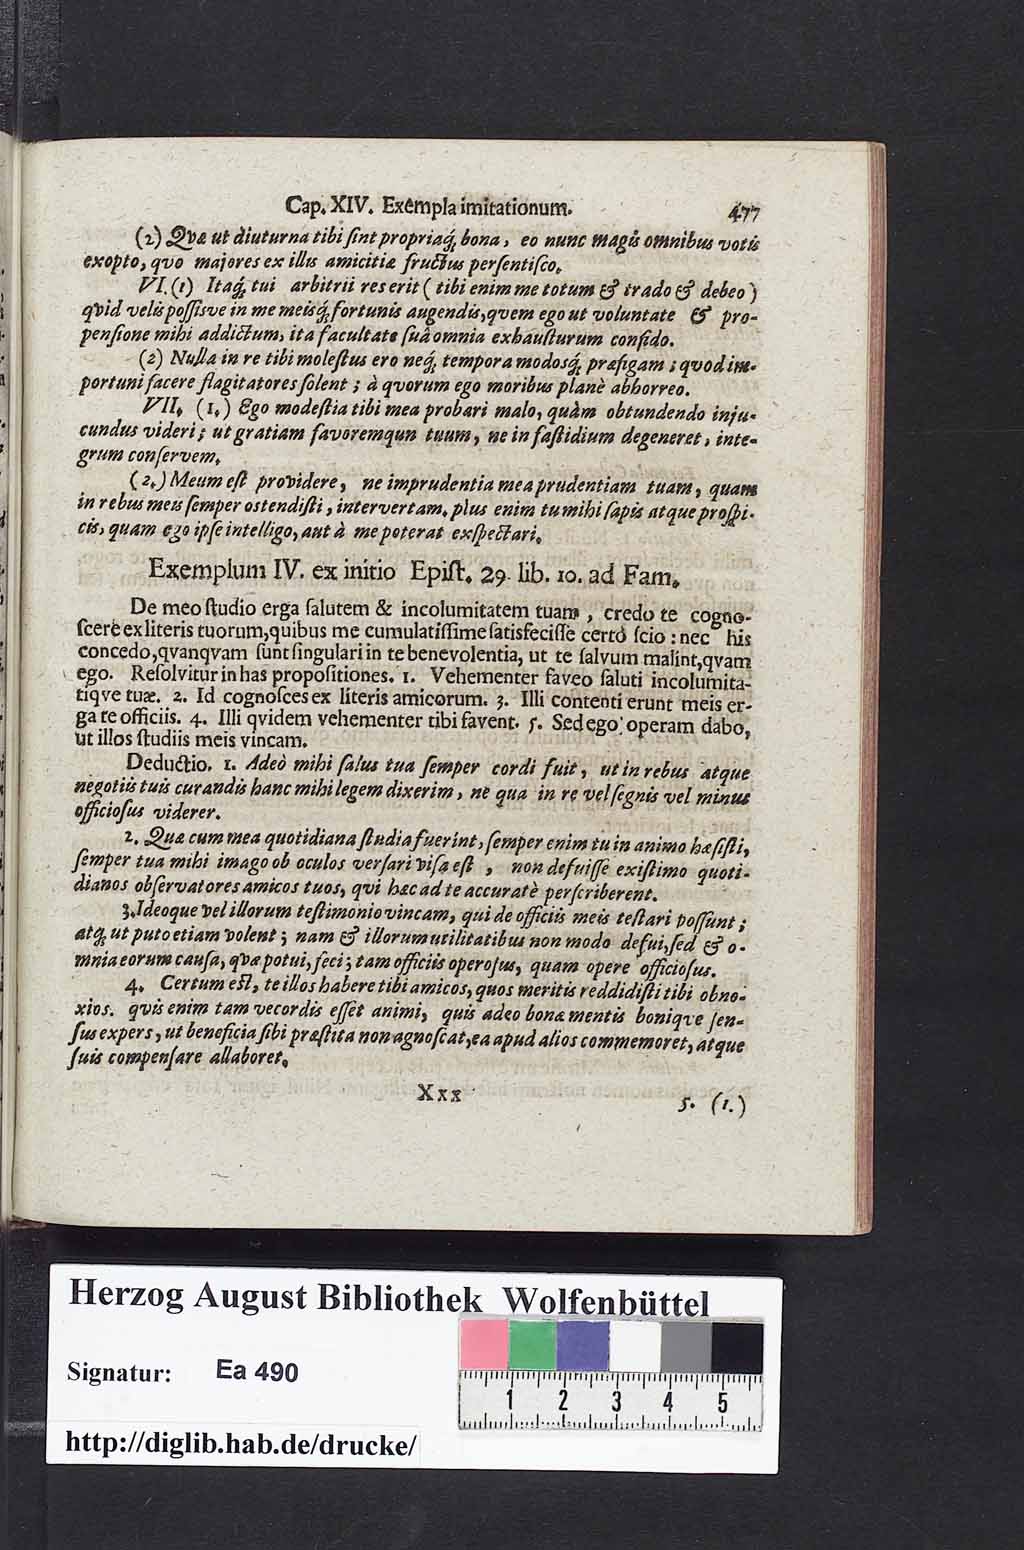 Cap. XIV. Exempla imitationum. 477
(2) Qvæ ut diuturna tibi ſint propriaq́; bona, eo nunc magis omnibus votis
exopto, qvo majores ex illis amicitiæ fructus perſentiſco.
VI. (1) Itaq́; tui arbitrii res erit (tibi enim me totum & trado & debeo)
qvid velis poſſisve in me meisq́; fortunis augendis, qvem ego ut voluntate & pro-
penſione mihi addictum, ita facultate ſuâ omnia exhauſturum confido.
(2) Nulla in re tibi moleſtus ero neq́; tempora modosq́; præfigam; quod im-
portuni facere flagitatores ſolent; à qvorum ego moribus planè abhorreo.
VII. (1.) Ego modeſtia tibi mea probari malo, quàm obtundendo inju-
cundus videri; ut gratiam favoremqun tuum, ne in faſtidium degeneret, inte-
grum conſervem.
(2.) Meum eſt providere, ne imprudentia mea prudentiam tuam, quam
in rebus meis ſemper oſtendiſti, intervertam. plus enim tu mihi ſapis atque proſpi-
cis, quam ego ipſe intelligo, aut à me poterat exſpectari.
Exemplum IV. ex initio Epiſt. 29. lib. 10. ad Fam.
De meo ſtudio erga ſalutem & incolumitatem tuam, credo te cogno-
ſcere ex literis tuorum, quibus me cumulatiſſime ſatisfeciſſe certò ſcio: nec his
concedo, qvanqvam ſunt ſingulari in te benevolentia, ut te ſalvum malint, qvam
ego. Reſolvitur in has propoſitiones. 1. Vehementer faveo ſaluti incolumita-
tiqve tuæ. 2. Id cognoſces ex literis amicorum. 3. Illi contenti erunt meis er-
ga te officiis. 4. Illi qvidem vehementer tibi favent. 5. Sed ego operam dabo,
ut illos ſtudiis meis vincam.
Deductio. 1. Adeò mihi ſalus tua ſemper cordi fuit, ut in rebus atque
negotiis tuis curandis hanc mihi legem dixerim, ne qua in re vel ſegnis vel minus
officioſus viderer.
2. Quæ cum mea quotidiana ſtudia fuerint, ſemper enim tu in animo hæſiſti,
ſemper tua mihi imago ob oculos verſari viſa eſt, non defuiſſe exiſtimo quoti-
dianos obſervatores amicos tuos, qvi hæc ad te accuratè perſcriberent.
3. Ideoque vel illorum teſtimonio vincam, qui de officiis meis teſtari poſſunt;
atq́; ut puto etiam volent; nam & illorum utilitatibus non modo defui, ſed & o-
mnia eorum cauſa, qvæ potui, feci; tam officiis operoſus, quam opere officioſus.
4. Certum eſt, te illos habere tibi amicos, quos meritis reddidiſti tibi obno-
xios. qvis enim tam vecordis eſſet animi, quis adeo bonæ mentis boniqve ſen-
ſus expers, ut beneficia ſibi præſtita non agnoſcat, ea apud alios commemoret, atque
ſuis compenſare allaboret.
Xxx 5. (1.)
Herzog August Bibliothek Wolfenbüttel
Signatur: Ea 490
1 2 3 4 5
http://diglib.hab.de/drucke/